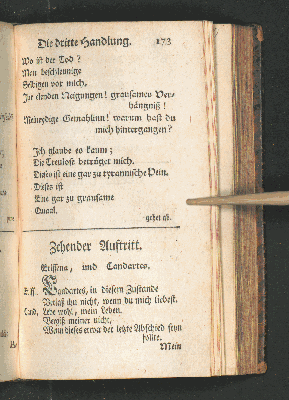 Die dritte Handlung. 173
Wo ist der Tod?
Man beschleunige
Selbigen vor mich.
Ihr elenden Neigungen! grausames Ver-
hängniß!
Meineydige Gemahlinn! warum hast du
mich hintergangen?
Ich glaube es kaum;
Die Treulose betrüget mich.
Dieses ist eine gar zu tyrannische Pein.
Dieses ist
Eine gar zu grausame
Quaal.
gehet ab.
Zehender Auftritt.
Erissena, und Candartes.
Eriss. Candartes, in diesem Zustande
Verlaß ihn nicht, wenn du mich liebest.
Cand. Lebe wohl, mein Leben.
Vergiß meiner nicht,
Wann dieses etwa der letzte Abschied seyn
sollte.
Mein